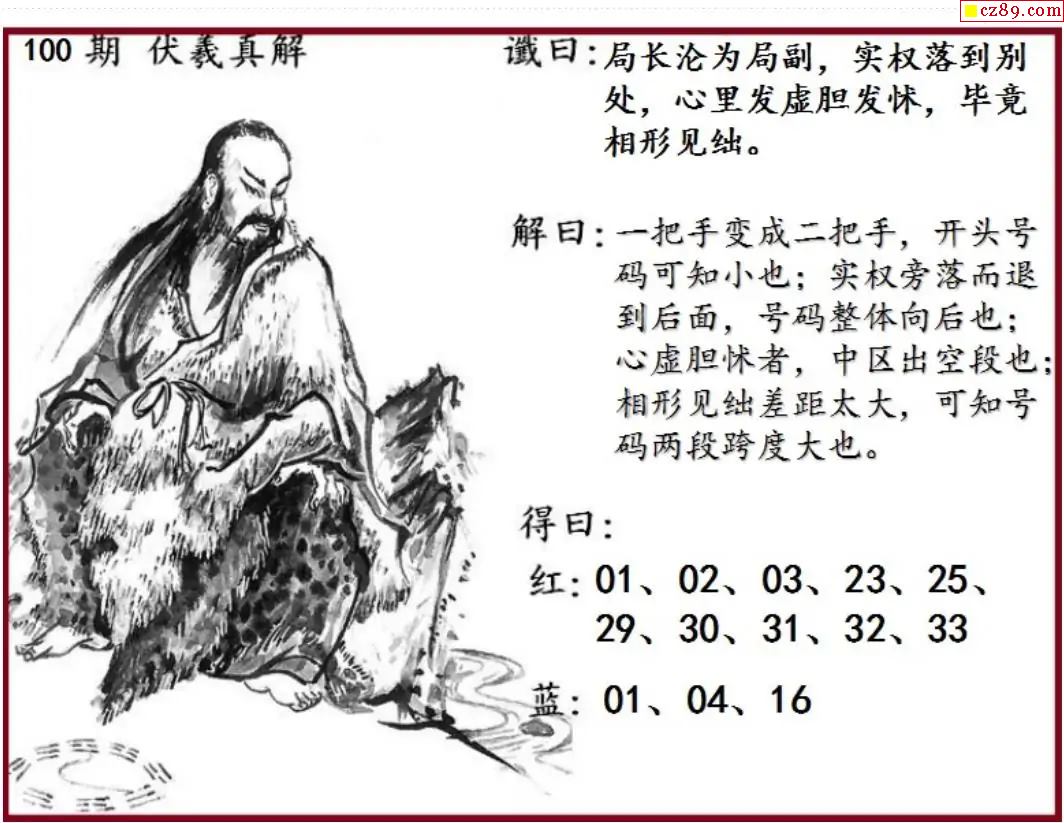 cz89.com
100 期 伏羲真解
谶曰:局长沦为局副，实权落到别
处，心里发虚胆发怵，毕竟
相形见绌。
解曰:一把手变成二把手，开头号
码可知小也；实权旁落而退
到后面，号码整体向后也；
心虚胆怵者，中区出空段也；
相形见绌差距太大，可知号
码两段跨度大也。
得曰:
红: 01、02、03、23、25、
29、30、31、32、33
蓝: 01、04、16